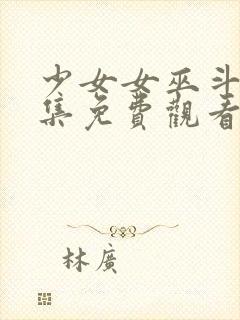 少女女巫斗
集免費觀看
林廣